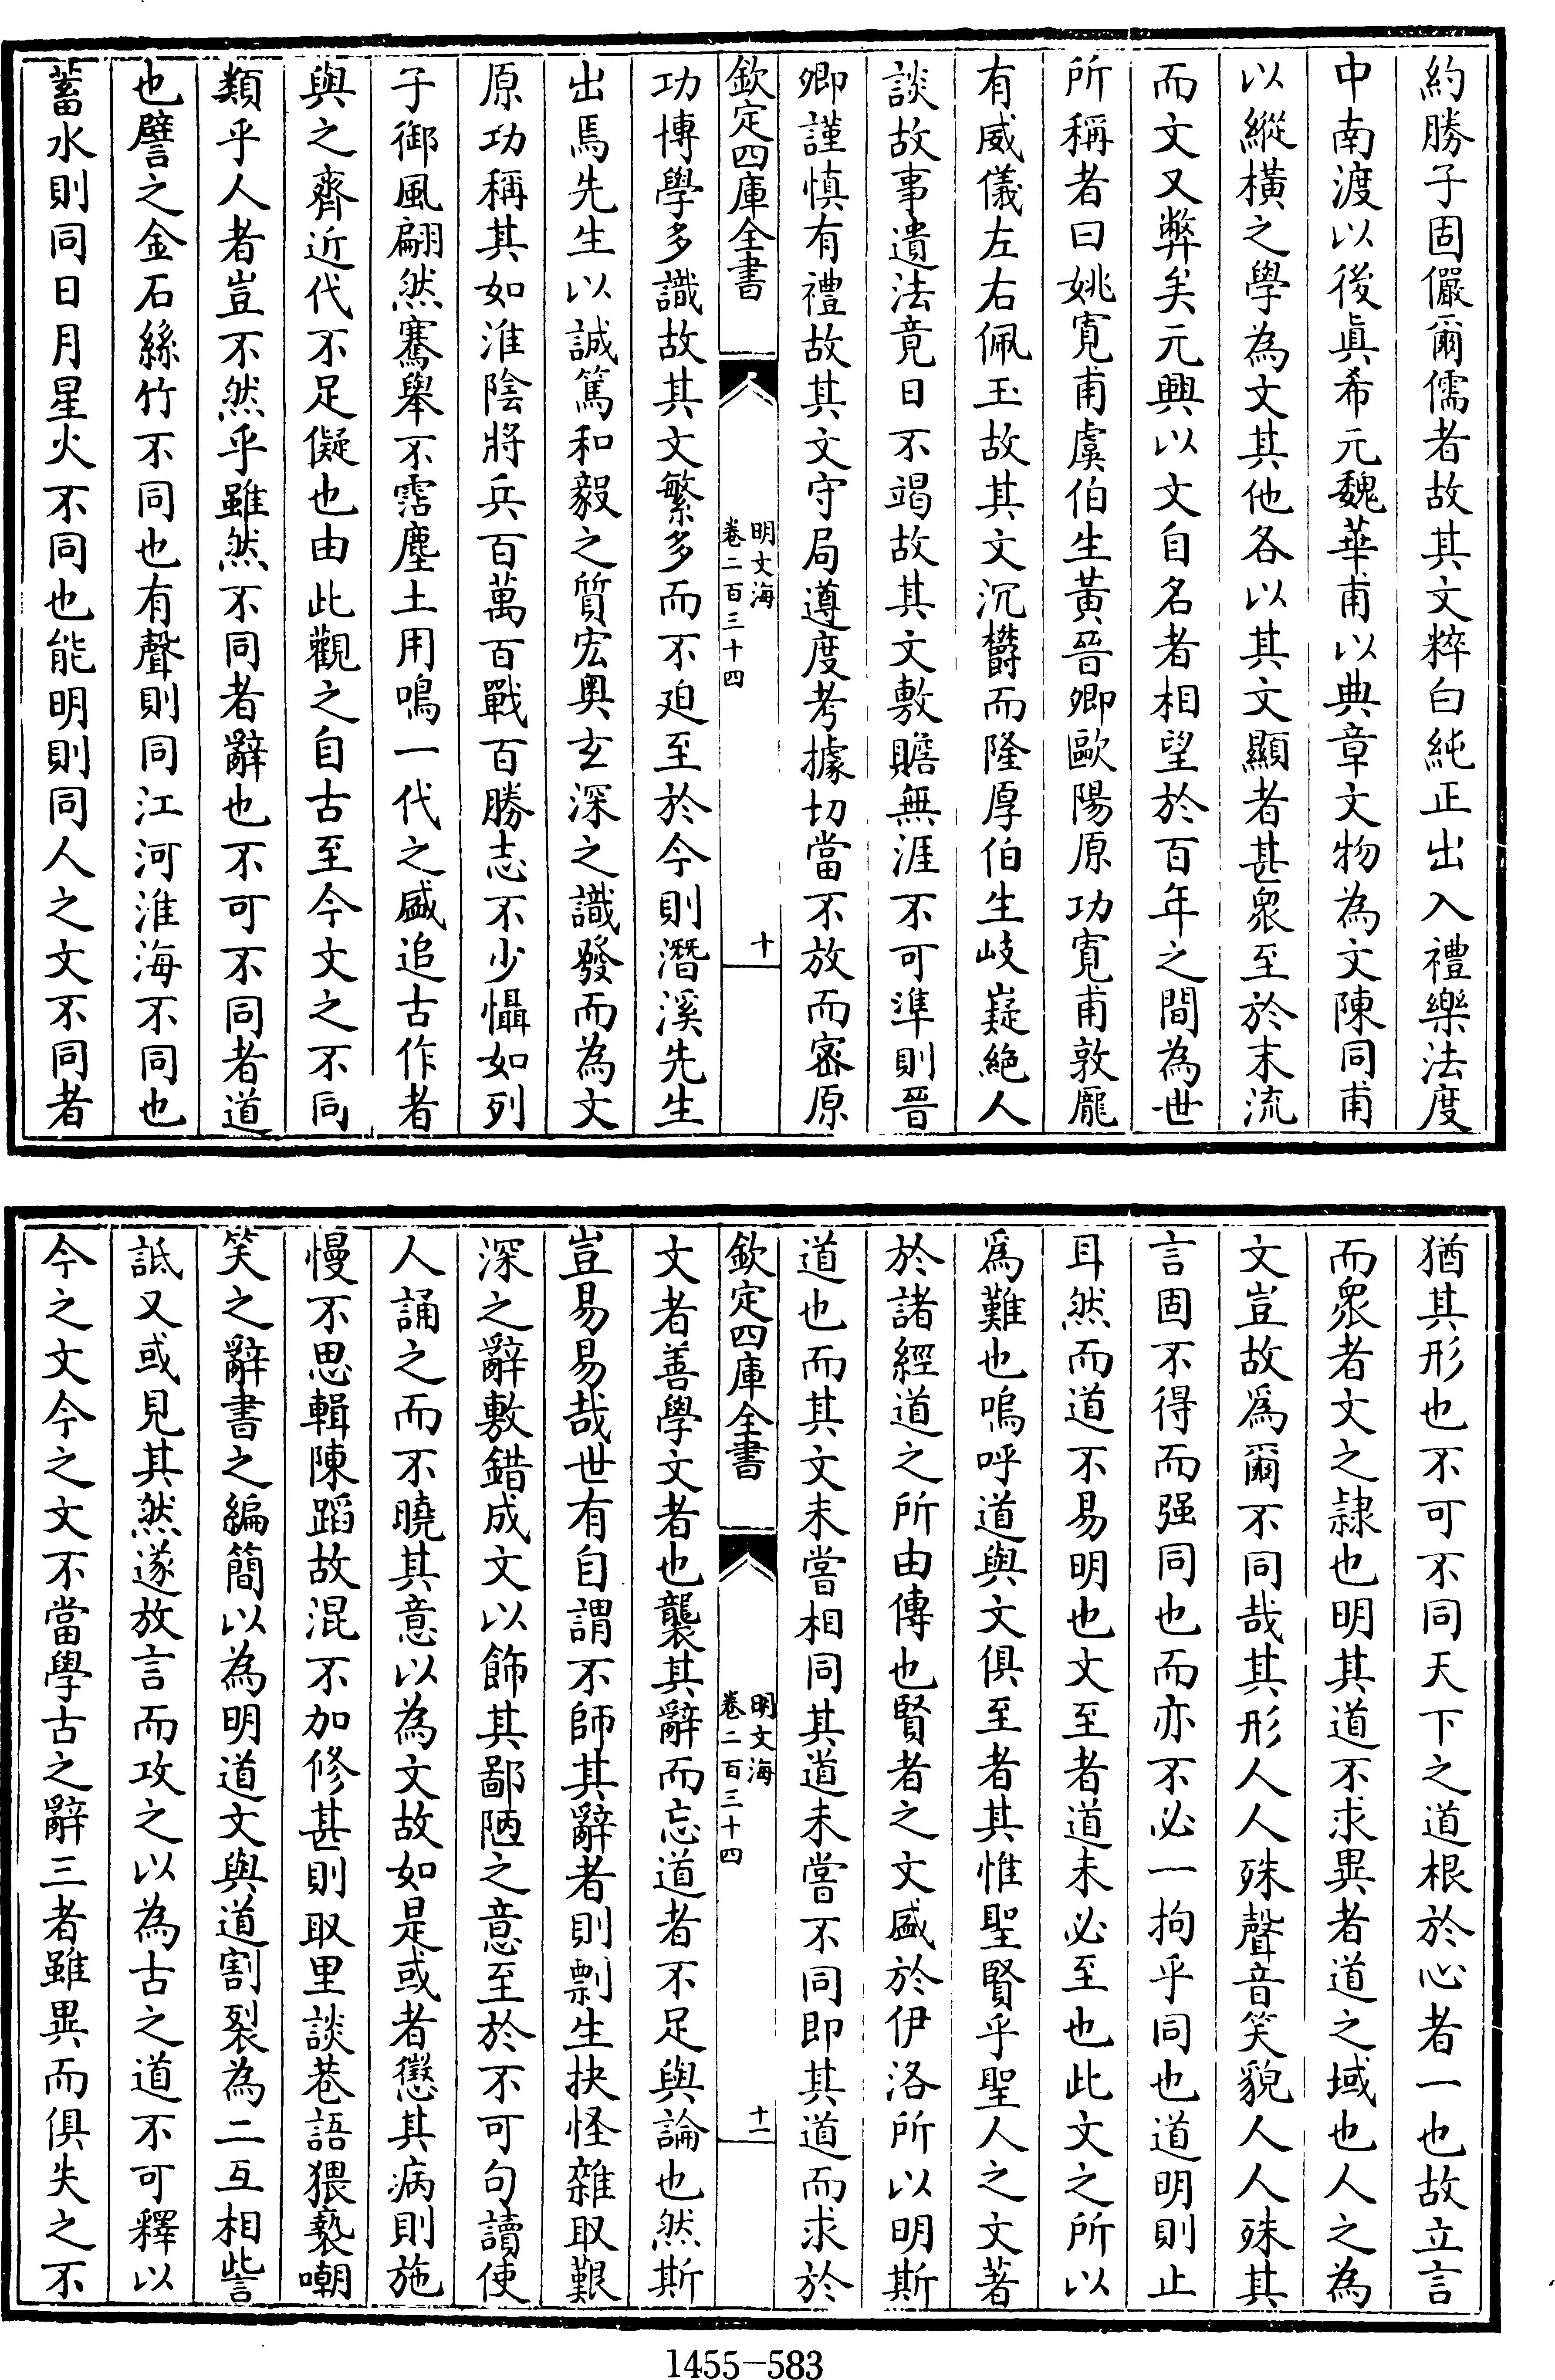 約勝子固儼爾儒者故其文粹白純正出入禮樂法度
中南渡以後眞希元魏華甫以典章文物為文陳同甫
以縱橫之學為文其他各以其文顯者甚衆至於末流
而文又弊矣元興以文自名者相望於百年之間為世
所稱者曰姚寛甫虞伯生黃晉卿歐陽原功寛甫敦龎
有威儀左右佩玉故其文沉欝而隆厚伯生岐嶷絶人
談故事遺法竟日不竭故其文敷贍無涯不可準則晉
卿謹慎有禮故其文守局遵度考據切當不放而宻原
欽定四庫全書
明文海
卷二百三十四
十
功博學多識故其文繁多而不迫至於今則潛溪先生
出焉先生以誠篤和毅之質宏奥玄深之識發而為文
原功稱其如淮陰將兵百萬百戰百勝志不少懾如列
子御風翩然騫舉不霑塵土用鳴一代之盛追古作者
與之齊近代不足儗也由此觀之自古至今文之不同
類乎人者豈不然乎雖然不同者辭也不可不同者道
也譬之金石絲竹不同也有聲則同江河淮海不同也
蓄水則同日月星火不同也能明則同人之文不同者
猶其形也不可不同天下之道根於心者一也故立言
而衆者文之隷也明其道不求異者道之域也人之為
文豈故爲爾不同哉其形人人殊聲音笑貌人人殊其
言固不得而强同也而亦不必一拘乎同也道明則止
耳然而道不易明也文至者道未必至也此文之所以
爲難也嗚呼道與文俱至者其惟聖賢乎聖人之文著
於諸經道之所由傳也賢者之文盛於伊洛所以明斯
道也而其文未嘗相同其道未嘗不同即其道而求於
欽定四庫全書
明文海
卷二百三十四
十一
文者善學文者也襲其辭而忘道者不足與論也然斯
豈易易哉世有自謂不師其辭者則剽生抉怪雜取艱
深之辭敷錯成文以飾其鄙陋之意至於不可句讀使
人誦之而不曉其意以為文故如是或者懲其病則施
慢不思輯陳蹈故混不加修甚則取里談巷語猥褻嘲
笑之辭書之編簡以為明道文與道割裂為二互相訾
詆又或見其然遂放言而攻之以為古之道不可釋以
今之文今之文不當學古之辭三者雖異而俱失之不
1455-583